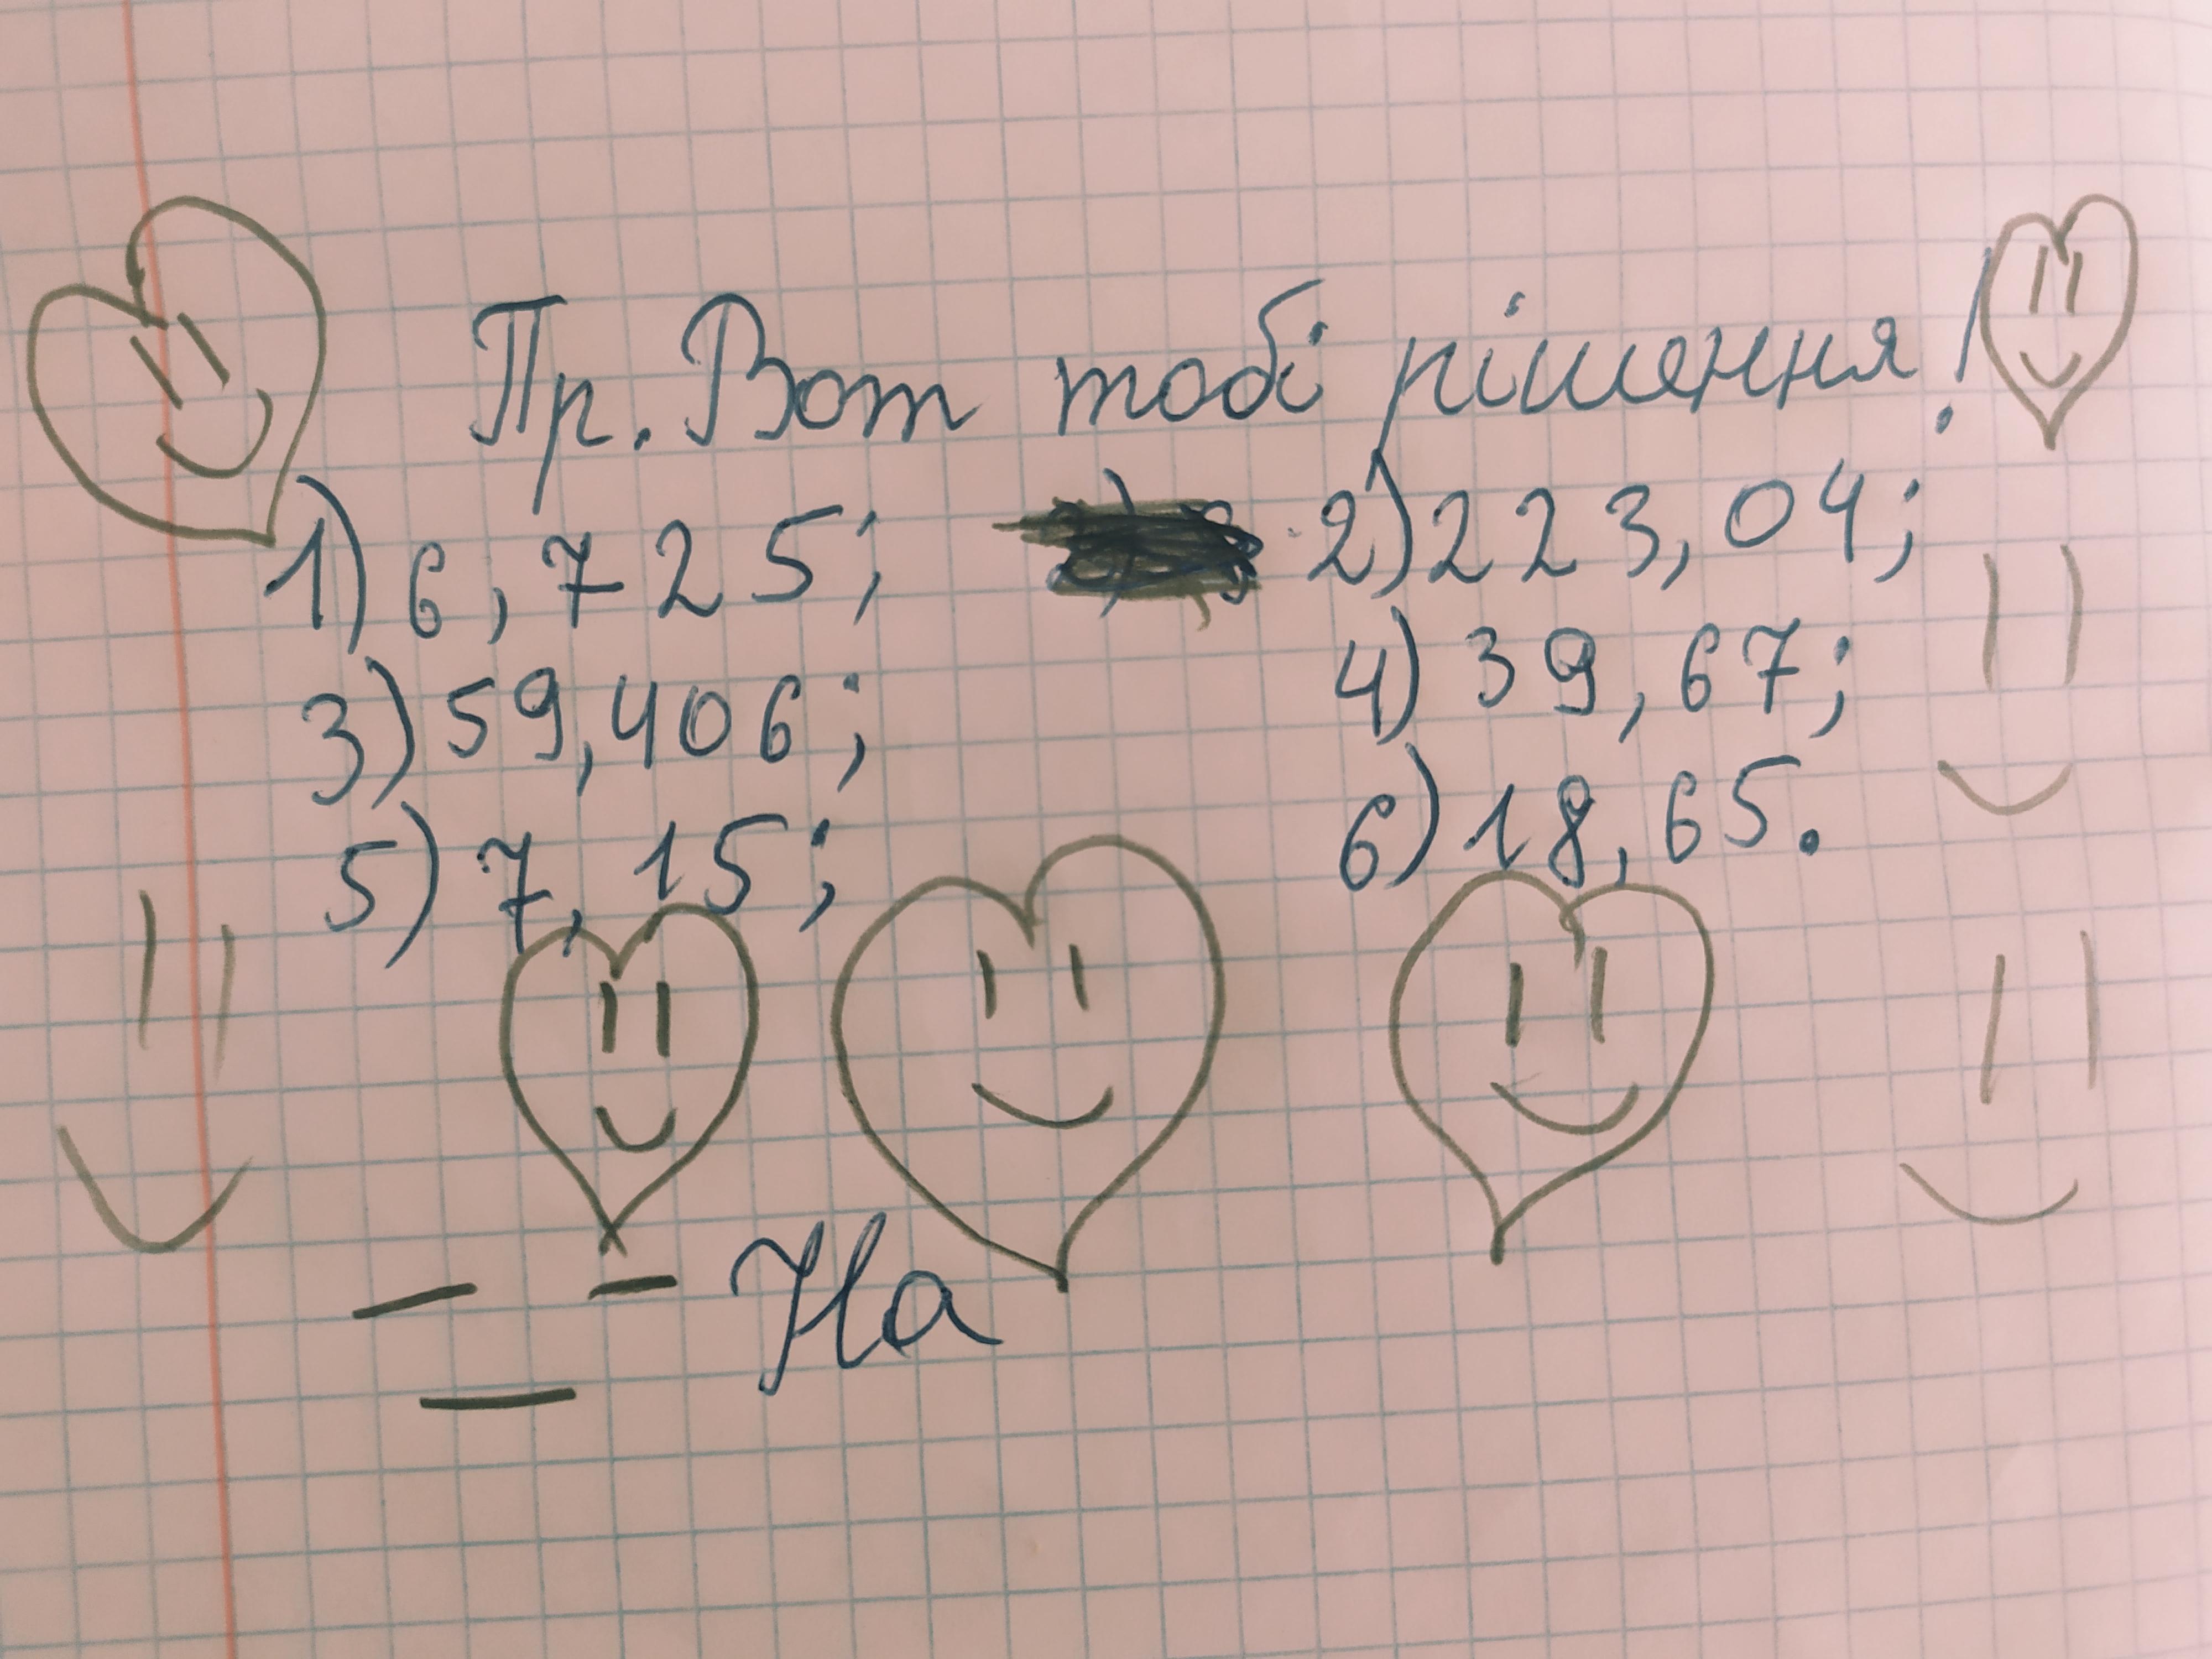 Пр. Вот тобі рішення!
1) 6,725; 2) 223,04;
3) 59,406; 4) 39,67;
5) 7,15; 6) 18,65.
На